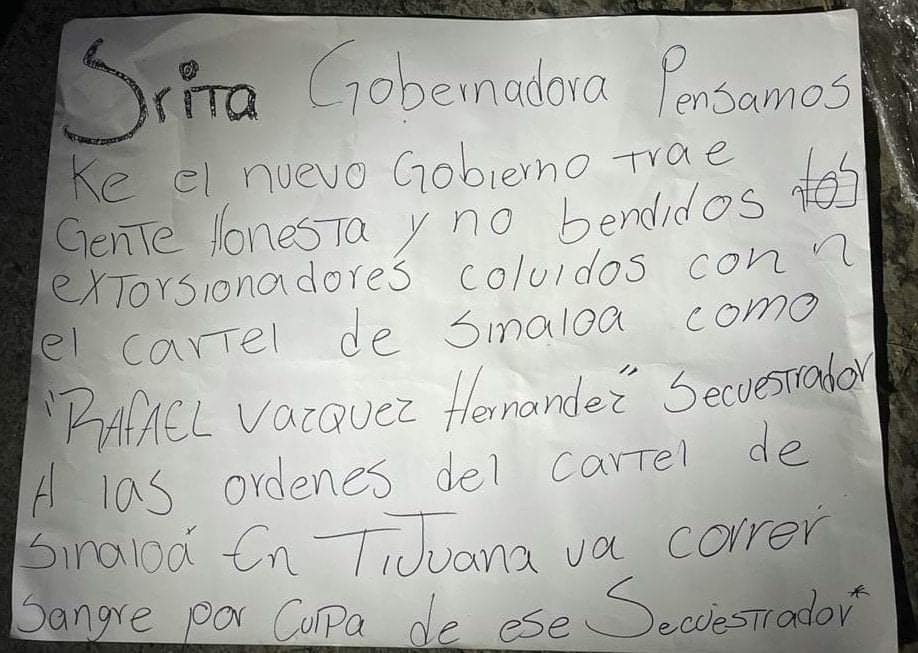 Srita Gobernadora Pensamos
Ke el nuevo Gobierno trae
Gente Honesta y no bendidos
extorsionadores coluidos con
el cartel de Sinaloa como
"RAfAEL Vazquez Hernandez" Secuestrador
A las ordenes del cartel de
Sinaloa En TiJuana va correr
Sangre por Culpa de ese Secuestrador*